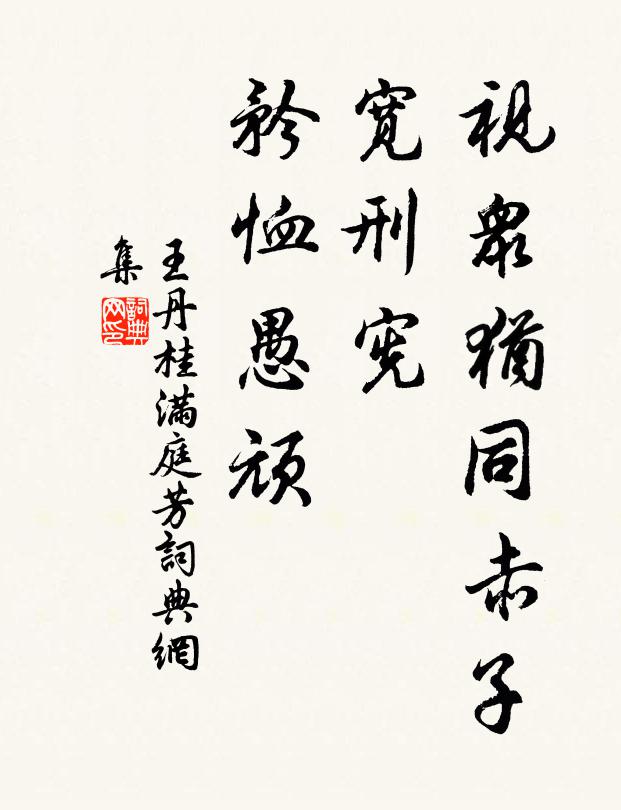 視眾猶同赤子
寬刑宪
矜恤愚頑
王丹桂滿庭芳詞典網
集
詞典网印